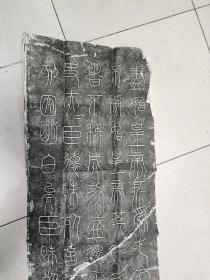 盡始皇帝所為也今
不稱始皇帝其
者不稱成功盛德
史夫臣德昧死言
刻因明白矣臣昧死